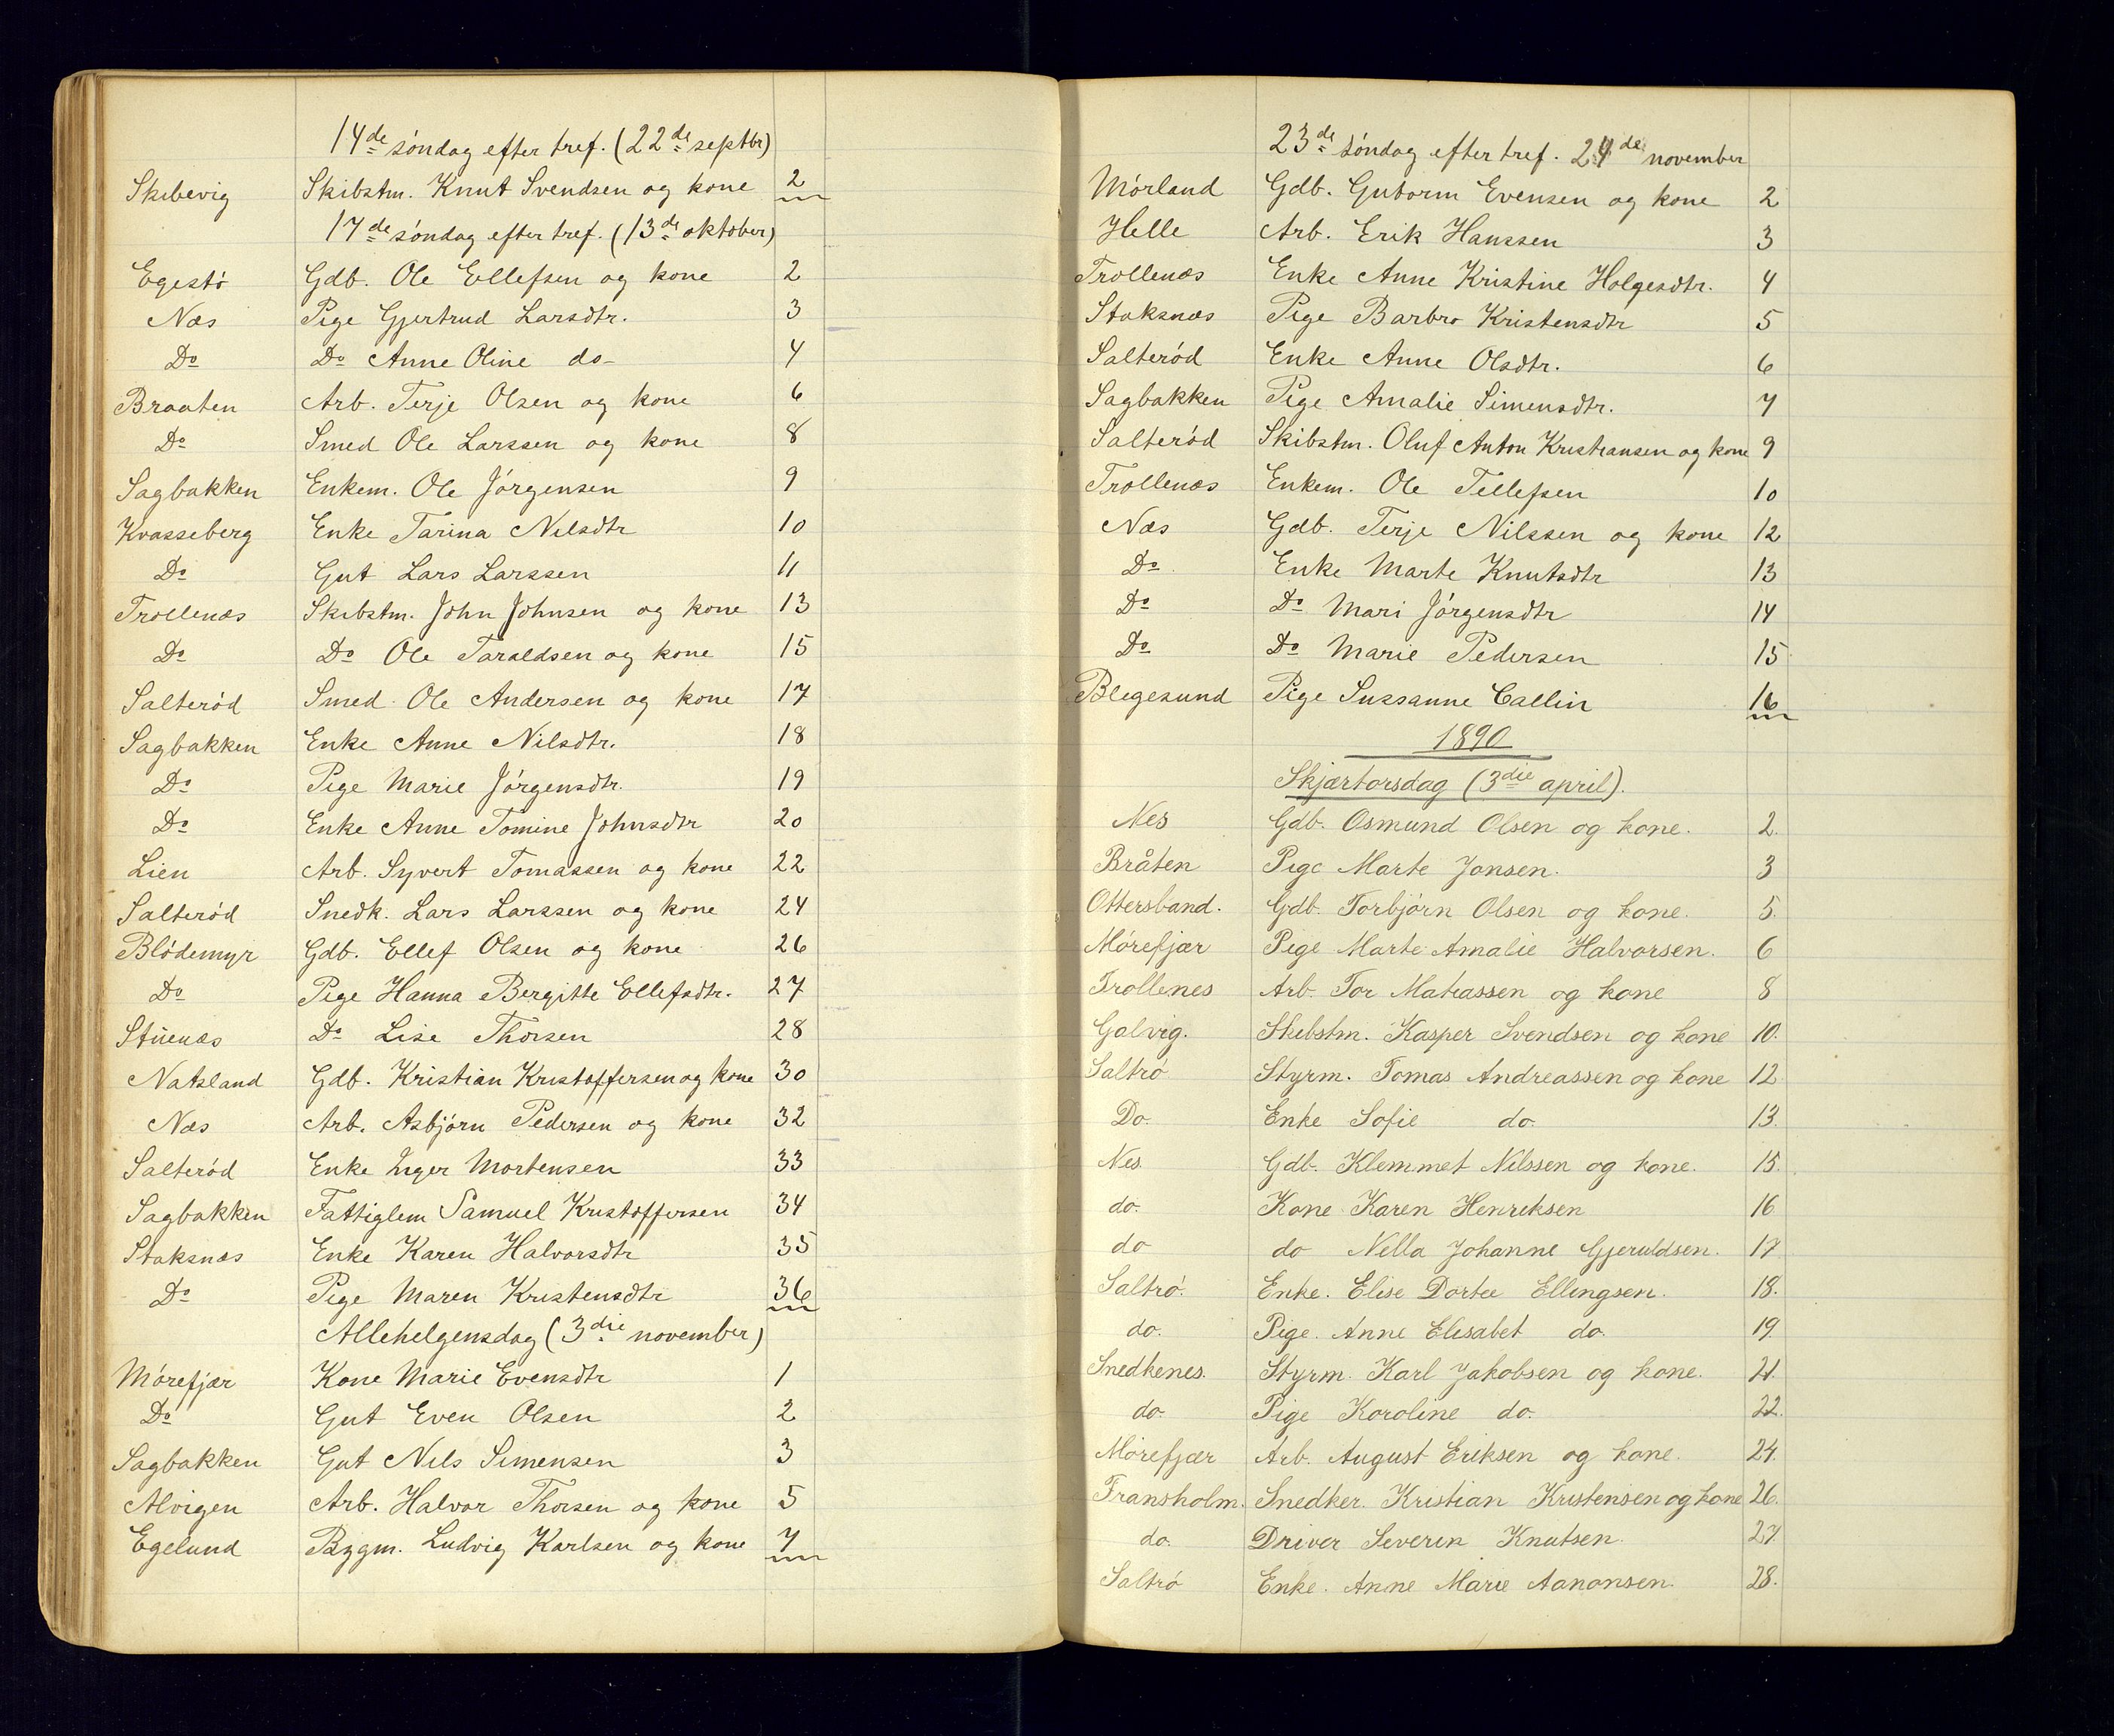 14de søndag efter tref. (22de septbr)
Skibevig Skibstm. Knut Svendsen og kone 2
17de søndag efter tref. (13de oktober)
Egestø Gdb. Ole Ellefsen og kone 2
Næs Pige Gjertrud Larsdtr. 3
Do Do Anne Oline do- 4
Braaten Arb. Terje Olsen og kone 6
Do Smed Ole Larssen og kone 8
Sagbakken Enkem. Ole Jørgensen 9
Kvasseberg Enke Tarina Nilsdtr 10
Do Gut Lars Larssen 11
Trollenæs Skibstm. John Johnsen og kone 13
Do Do Ole Taraldsen og kone 15
Salterød Smed Ole Andersen og kone 17
Sagbakken Enke Anne Nilsdtr. 18
Do Pige Marie Jørgensdtr. 19
Do Enke Anne Tomine Johnsdtr 20
Lien Arb. Syvert Tomassen og kone 22
Salterød Snedk. Lars Larssen og kone 24
Blødemyr Gdb. Ellef Olsen og kone 26
Do Pige Hanna Bergitte Ellefsdtr. 27
Stuenæs Do Lise Thorsen 28
Natsland Gdb. Kristian Kristoffersen og kone 30
Næs Arb. Asbjørn Pedersen og kone 32
Salterød Enke Inger Mortensen 33
Sagbakken Fattiglem Samuel Kristoffersen 34
Staksnæs Enke Karen Halvorsdtr 35
Do Pige Maren Kristensdtr 36
Allehelgensdag (3die november)
Mørefjær Kone Marie Evensdtr 1
Do Gut Even Olsen 2
Sagbakken Gut Nils Simensen 3
Alvigen Arb. Halvor Thorsen og kone 5
Egelund Bygm. Ludvig Karlsen og kone 7
23de søndag efter tref. 24de november
Mørland Gdb. Gutorm Evensen og kone 2
Helle Arb. Erik Hanssen 3
Trollenæs Enke Anne Kristine Holgesdtr. 4
Staksnæs Pige Barbro Kristensdtr 5
Salterød Enke Anne Olsdtr. 6
Sagbakken Pige Amalie Simensdtr. 7
Salterød Skibstm. Oluf Anton Kristiansen og kone 9
Trollenæs Enkem. Ole Tellefsen 10
Næs Gdb. Terje Nilssen og kone 12
Do Enke Marte Knutsdtr 13
Do Do Mari Jørgensdtr 14
Do Do Marie Pedersen 15
Blegesund Pige Sussanne Callin 16
1890
Skjærtorsdag (3die april).
Nes Gdb. Osmund Olsen og kone. 2.
Bråten Pige Marte Jansen. 3
Ottersband. Gdb. Torbjørn Olsen og kone. 5.
Mørefjær Pige Marte Amalie Halvorsen. 6
Trollenes Arb. Tor Mateassen og kone 8
Galvig. Skibstm. Kasper Svendsen og kone 10.
Saltrø Styrm. Tomas Andreassen og kone 12.
Do. Enke Sofie do. 13.
Nes. Gdb. Klemmet Nilssen og kone. 15.
do. Kone Karen Henriksen 16
do do Nella Johanne Gjeruldsen. 17
Saltrø. Enke. Elise Dortee Ellingsen. 18.
do. Pige. Anne Elisabet do. 19
Snedkenes. Styrm. Karl Jakobsen og kone. 21.
do. Pige Karoline do. 22.
Mørefjær Arb. August Eriksen og kone. 24.
Fransholm. Snedker. Kristian Kristensen og kone 26.
do. Driver Severin Knutsen. 27.
Saltrø Enke. Anne Marie Aanonsen. 28.